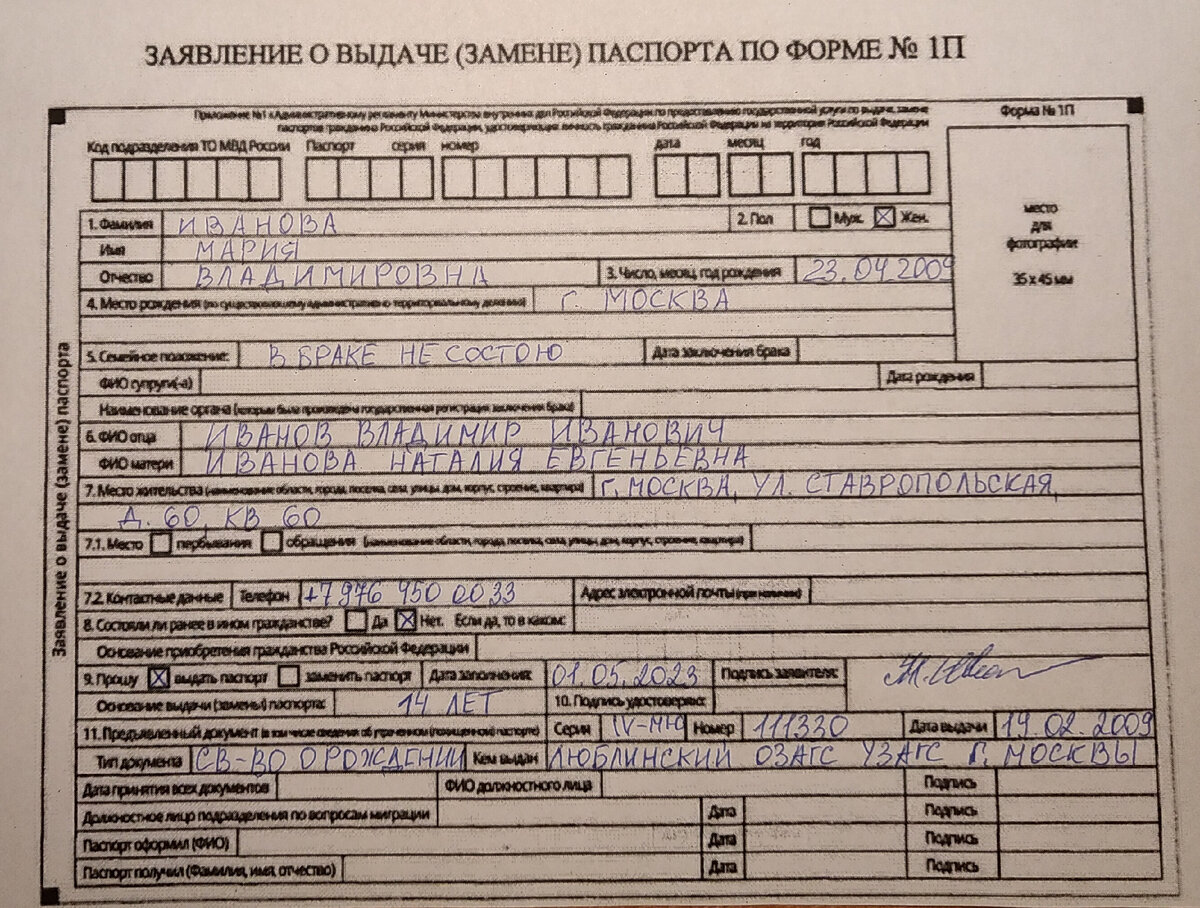 ЗАЯВЛЕНИЕ О ВЫДАЧЕ (ЗАМЕНЕ) ПАСПОРТА ПО ФОРМЕ № 1П
Приложение №1 к Административному регламенту Министерства внутренних дел Российской Федерации по предоставлению государственной услуги по выдаче, замене
паспортов гражданина Российской Федерации, удостоверяющих личность гражданина Российской Федерации на территории Российской Федерации
Форма № 1П
Код подразделения ТО МВД России Паспорт серия номер дата месяц год
место
для
фотографии
35 х 45 мм
1. Фамилия ИВАНОВА 2. Пол Муж. Жен.
Имя МАРИЯ
Отчество ВЛАДИМИРОВНА 3. Число, месяц, год рождения 23.04.2009
4. Место рождения (по существовавшему административно-территориальному делению) Г. МОСКВА
5. Семейное положение: В БРАКЕ НЕ СОСТОЮ Дата заключения брака
ФИО супруги(-а) Дата рождения
Наименование органа (которым была произведена государственная регистрация заключения брака)
6. ФИО отца ИВАНОВ ВЛАДИМИР ИВАНОВИЧ
ФИО матери ИВАНОВА НАТАЛИЯ ЕВГЕНЬЕВНА
7. Место жительства (наименование области, города, поселка, села, улицы, дом, корпус, строение, квартира) Г. МОСКВА, УЛ. СТАВРОПОЛЬСКАЯ,
Д. 60, КВ 60
7.1. Место пербывания обращения (наименование области, города, поселка, села, улицы, дом, корпус, строение, квартира)
7.2. Контактные данные Телефон +7 976 450 00 33 Адрес электронной почты (при наличии)
8. Состояли ли ранее в ином гражданстве? Да Нет. Если да, то в каком:
Основание приобретения гражданства Российской Федерации
9. Прошу выдать паспорт заменить паспорт Дата заполнения: 01.05.2023 Подпись заявителя:
Основание выдачи (замены) паспорта: 14 ЛЕТ 10. Подпись удостоверяю:
11. Предъявленный документ (в том числе сведения об утраченном (похищенном) паспорте) Серия IV-МЮ Номер 111330 Дата выдачи 19.02.2009
Тип документа СВ-ВО О РОЖДЕНИИ Кем выдан ЛЮБЛИНСКИЙ ОЗАГС УЗАГС Г. МОСКВЫ
Дата принятия всех документов ФИО должностного лица Подпись
Должностное лицо подразделения по вопросам миграции Дата Подпись
Паспорт оформил (ФИО) Дата Подпись
Паспорт получил (Фамилия, имя, отчество) Дата Подпись
Заявление о выдаче (замене) паспорта